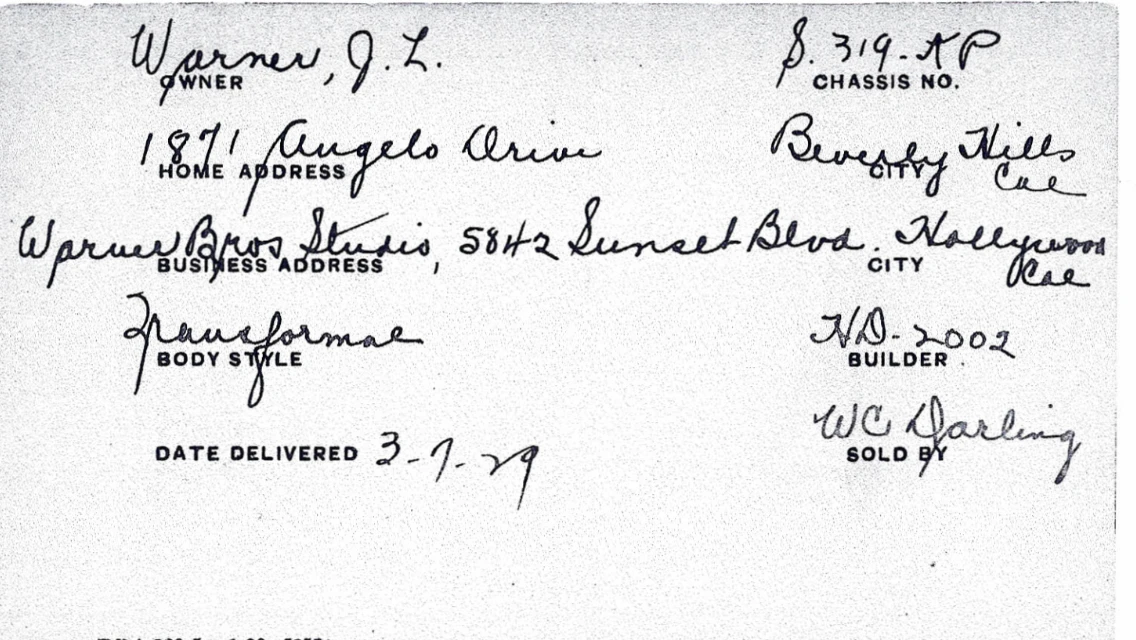 Warner, J. L. S. 319-KP
OWNER CHASSIS NO.
1871 Angelo Drive Beverly Hills
HOME ADDRESS CITY Cal
Warner Bros Studio, 5842 Sunset Blvd. Hollywood
BUSINESS ADDRESS CITY Cal
Transformal HD-2002
BODY STYLE BUILDER
WC Darling
DATE DELIVERED 3-7-29 SOLD BY